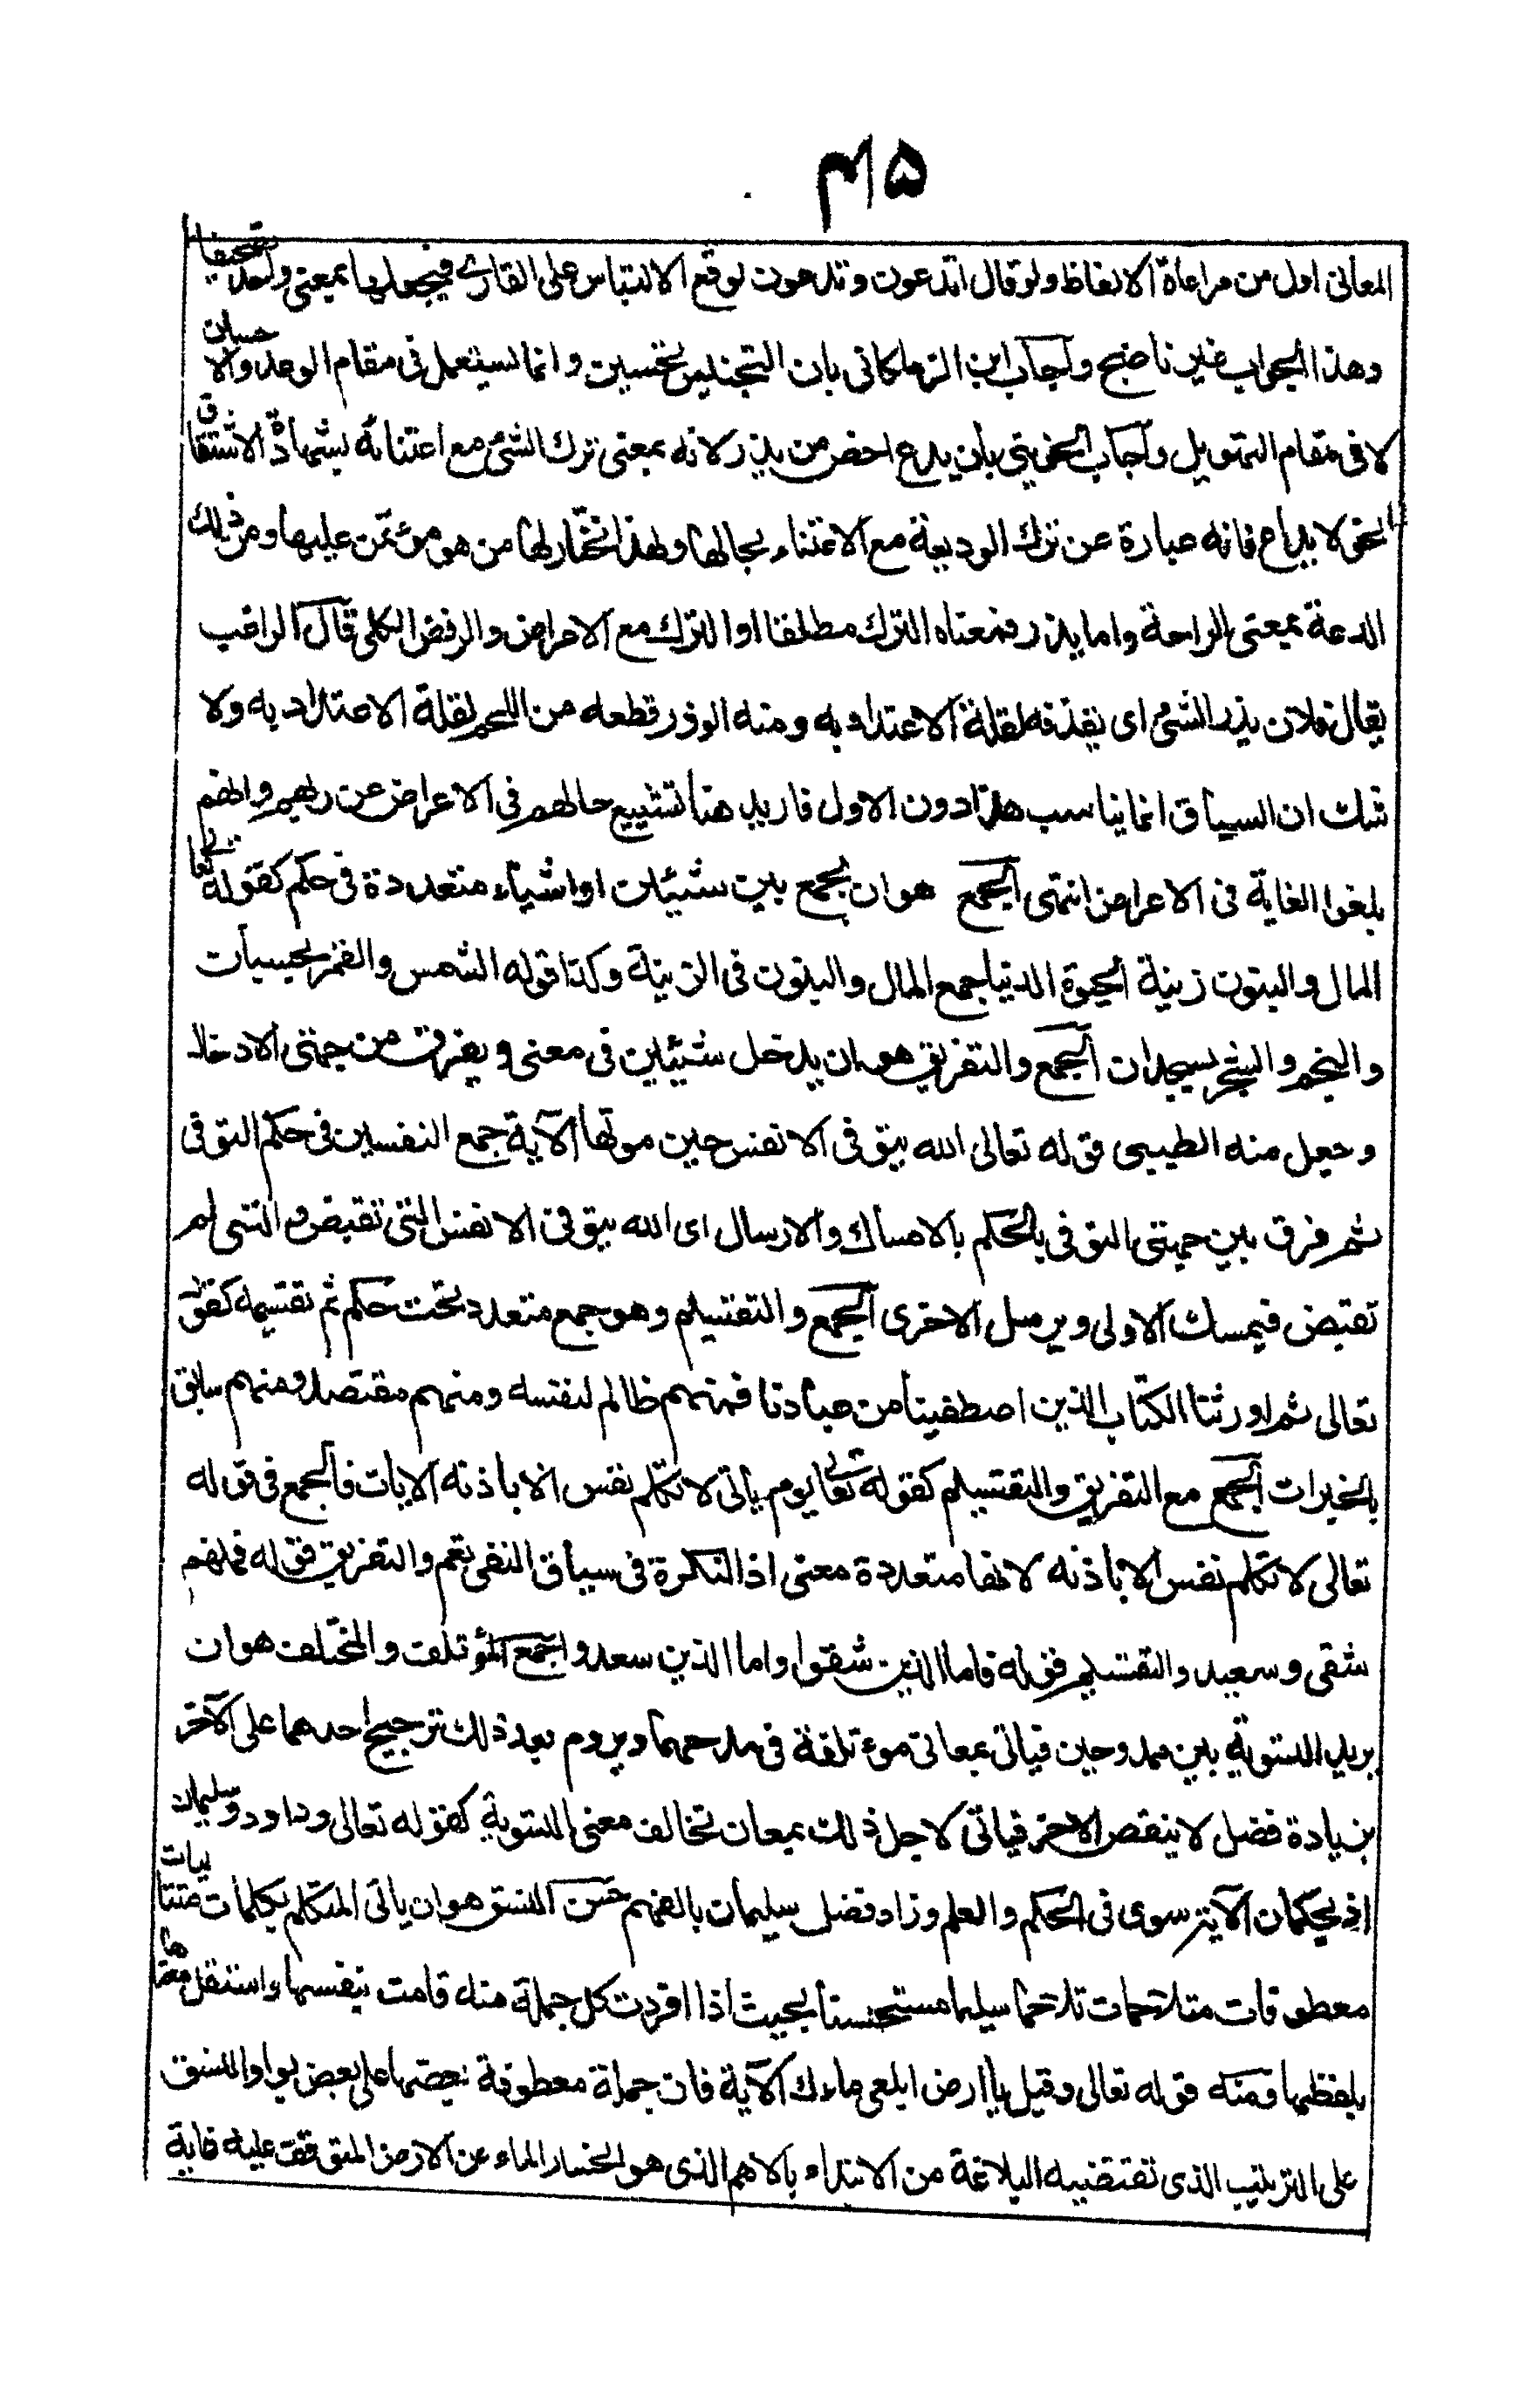 ۵۱۴
المعانى اولى من مراعاة الالفاظ ولو قال اتدعون وتدعون لوقع الالتباس على القارئ فيجعلها بمعنى واحد تصحيفا
وهذا الجواب غير ناضج واجاب ابن الزملكانى بان التجنيس تحسين وانما يستعمل فى مقام الوعد والاحسان
لا فى مقام التهويل واجاب الخويى بأن يدع اخص من يذر لانه بمعنى ترك الشئ مع اعتنائه بشهادة الاشتقاق
نحو الايداع فانه عبارة عن ترك الوديعة مع الاعتناء بحالها ولهذا تختار لها من هو مؤتمن عليها ومن ذلك
الدعة بمعنى الراحة واما يذر فمعناه الترك مطلقا او الترك مع الاعراض والرفض الكلى قال الراغب
يقال فلان يذر الشئ اى يقذفه لقلة الاعتداد به ومنه الوذر قطعه من اللحم لقلة الاعتداد به ولا
شك ان السياق انما يناسب هذا دون الاول فاريد هنا تشنيع حالهم فى الاعراض عن ربهم وانهم
بلغوا الغاية فى الاعراض انتهى الجمع هو ان يجمع بين شيئين او اشياء متعددة فى حكم كقوله تعالى
المال والبنون زينة الحيوة الدنيا جمع المال والبنون فى الزينة وكذا قوله الشمس والقمر بحسبان
والنجم والشجر يسجدان الجمع والتفريق هو ان يدخل شيئين فى معنى ويفرق من جهتى الادخال
وجعل منه الطيبى قوله تعالى الله يتوفى الانفس حين موتها الآية جمع النفسين فى حكم التوفى
ثم فرق بين جهتى التوفى بالحكم بالامساك والارسال اى الله يتوفى الانفس التى تقبض والتى لم
تقبض فيمسك الاولى ويرسل الاخرى الجمع والتقسيم وهو جمع متعدد تحت حكم ثم تقسيمه كقوله
تعالى ثم اورثنا الكتاب الذين اصطفينا من عبادنا فمنهم ظالم لنفسه ومنهم مقتصد ومنهم سابق
بالخيرات الجمع مع التفريق والتقسيم كقوله تعالى يوم يأتى لا تكلم نفس الا باذنه الايات فالجمع فى قوله
تعالى لا تكلم نفس الا باذنه لانها متعددة معنى اذ النكرة فى سياق النفى تعم والتفريق قوله فمنهم
شقى وسعيد والتقسيم قوله فاما الذين شقوا واما الذين سعدوا جمع المؤتلف والمختلف هو ان
يريد التسوية بين ممدوحين فياتى بمعانى موءتلفة فى مدحهما ويروم بعد ذلك ترجيح احدهما على الآخر
بزيادة فضل لا ينقص الاخر فياتى لاجل ذلك بمعان تخالف معنى التسوية كقوله تعالى وداود وسليمان
اذ يحكمان الآية سوى فى الحكم والعلم وزاد فضل سليمان بالفهم حسن النسق هو ان يأتى المتكلم بكلمات متتاليات
معطوفات متلاحمات تلاحما سليما مستحسنا بحيث اذا افردت كل جملة منه قامت بنفسها واستقل معناها
بلفظها ومنه قوله تعالى وقيل يا ارض ابلعى ماءك الآية فان جملة معطوفة بعضها على بعض بواو النسق
على الترتيب الذى تقتضيه البلاغة من الابتداء بالاهم الذى هو انحسار الماء عن الارض المتوقف عليه غاية